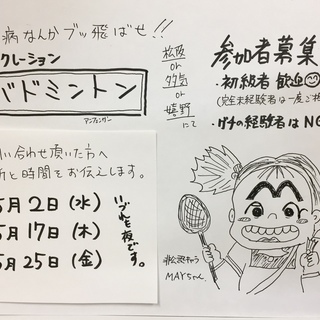 病なんかブッ飛ばせ!!
クレーション
バドミントン
い合わせ頂いた方へ
所と時間をお伝えします。
5月2日(水)
5月17日(木)
5月25日(金)
いづれも夜です。
松阪
or
多気
or
嬉野
にて
参加者募集
・初級者 歓迎
(完全未経験者は一度ご相
・ガチの経験者はNG
非公認キャラ
MAYちゃん